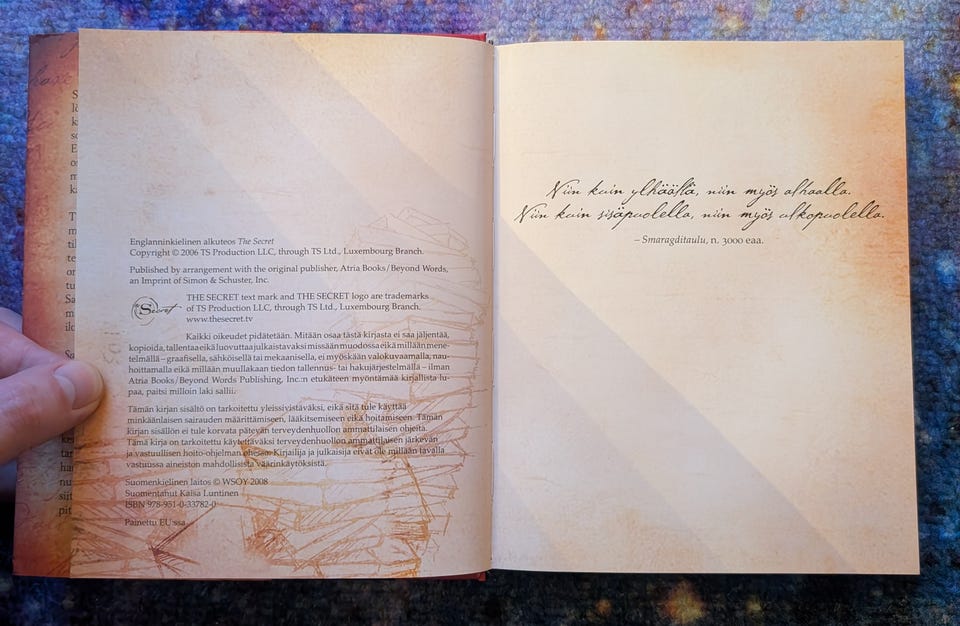 Englanninkielinen alkuteos The Secret
Copyright © 2006 TS Production LLC, through TS Ltd., Luxembourg Branch.
Published by arrangement with the original publisher, Atria Books/Beyond Words,
an Imprint of Simon & Schuster, Inc.
Secret
THE SECRET text mark and THE SECRET logo are trademarks
of TS Production LLC, through TS Ltd., Luxembourg Branch.
www.thesecret.tv
Kaikki oikeudet pidätetään. Mitään osaa tästä kirjasta ei saa jäljentää,
kopioida, tallentaa eikä luovuttaa julkaistavaksi missään muodossa eikä millään mene-
telmällä – graafisella, sähköisellä tai mekaanisella, ei myöskään valokuvaamalla, nau-
hoittamalla eikä millään muullakaan tiedon tallennus- tai hakujärjestelmällä – ilman
Atria Books/Beyond Words Publishing, Inc:n etukäteen myöntämää kirjallista lu-
paa, paitsi milloin laki sallii.
Tämän kirjan sisältö on tarkoitettu yleissivistäväksi, eikä sitä tule käyttää
minkäänlaisen sairauden määrittämiseen, lääkitsemiseen eikä hoitamiseen. Tämän
kirjan sisällön ei tule korvata pätevän terveydenhuollon ammattilaisen ohjeita.
Tämä kirja on tarkoitettu käytettäväksi terveydenhuollon ammattilaisen järkevän
ja vastuullisen hoito-ohjelman ohessa. Kirjailija ja julkaisija eivät ole millään tavalla
vastuussa aineiston mahdollisista väärinkäytöksistä.
Suomenkielinen laitos © WSOY 2008
Suomentanut Kaisa Luntinen
ISBN 978-951-0-33782-0
Painettu EU:ssa
Niin kuin ylhäällä, niin myös alhaalla.
Niin kuin sisäpuolella, niin myös ulkopuolella.
– Smaragditaulu, n. 3000 eaa.